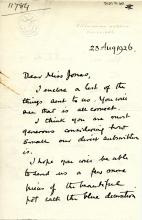 11784
23 Aug 1926.
Dear Miss Jonas,
I enclose a list of the
things sent to us. You will
see that is all correct.
I think you are most
generous considering how
small our direct subscription
is.
I hope you will be able
to send us a few more
pieces of the beautiful
pot with the blue decoration